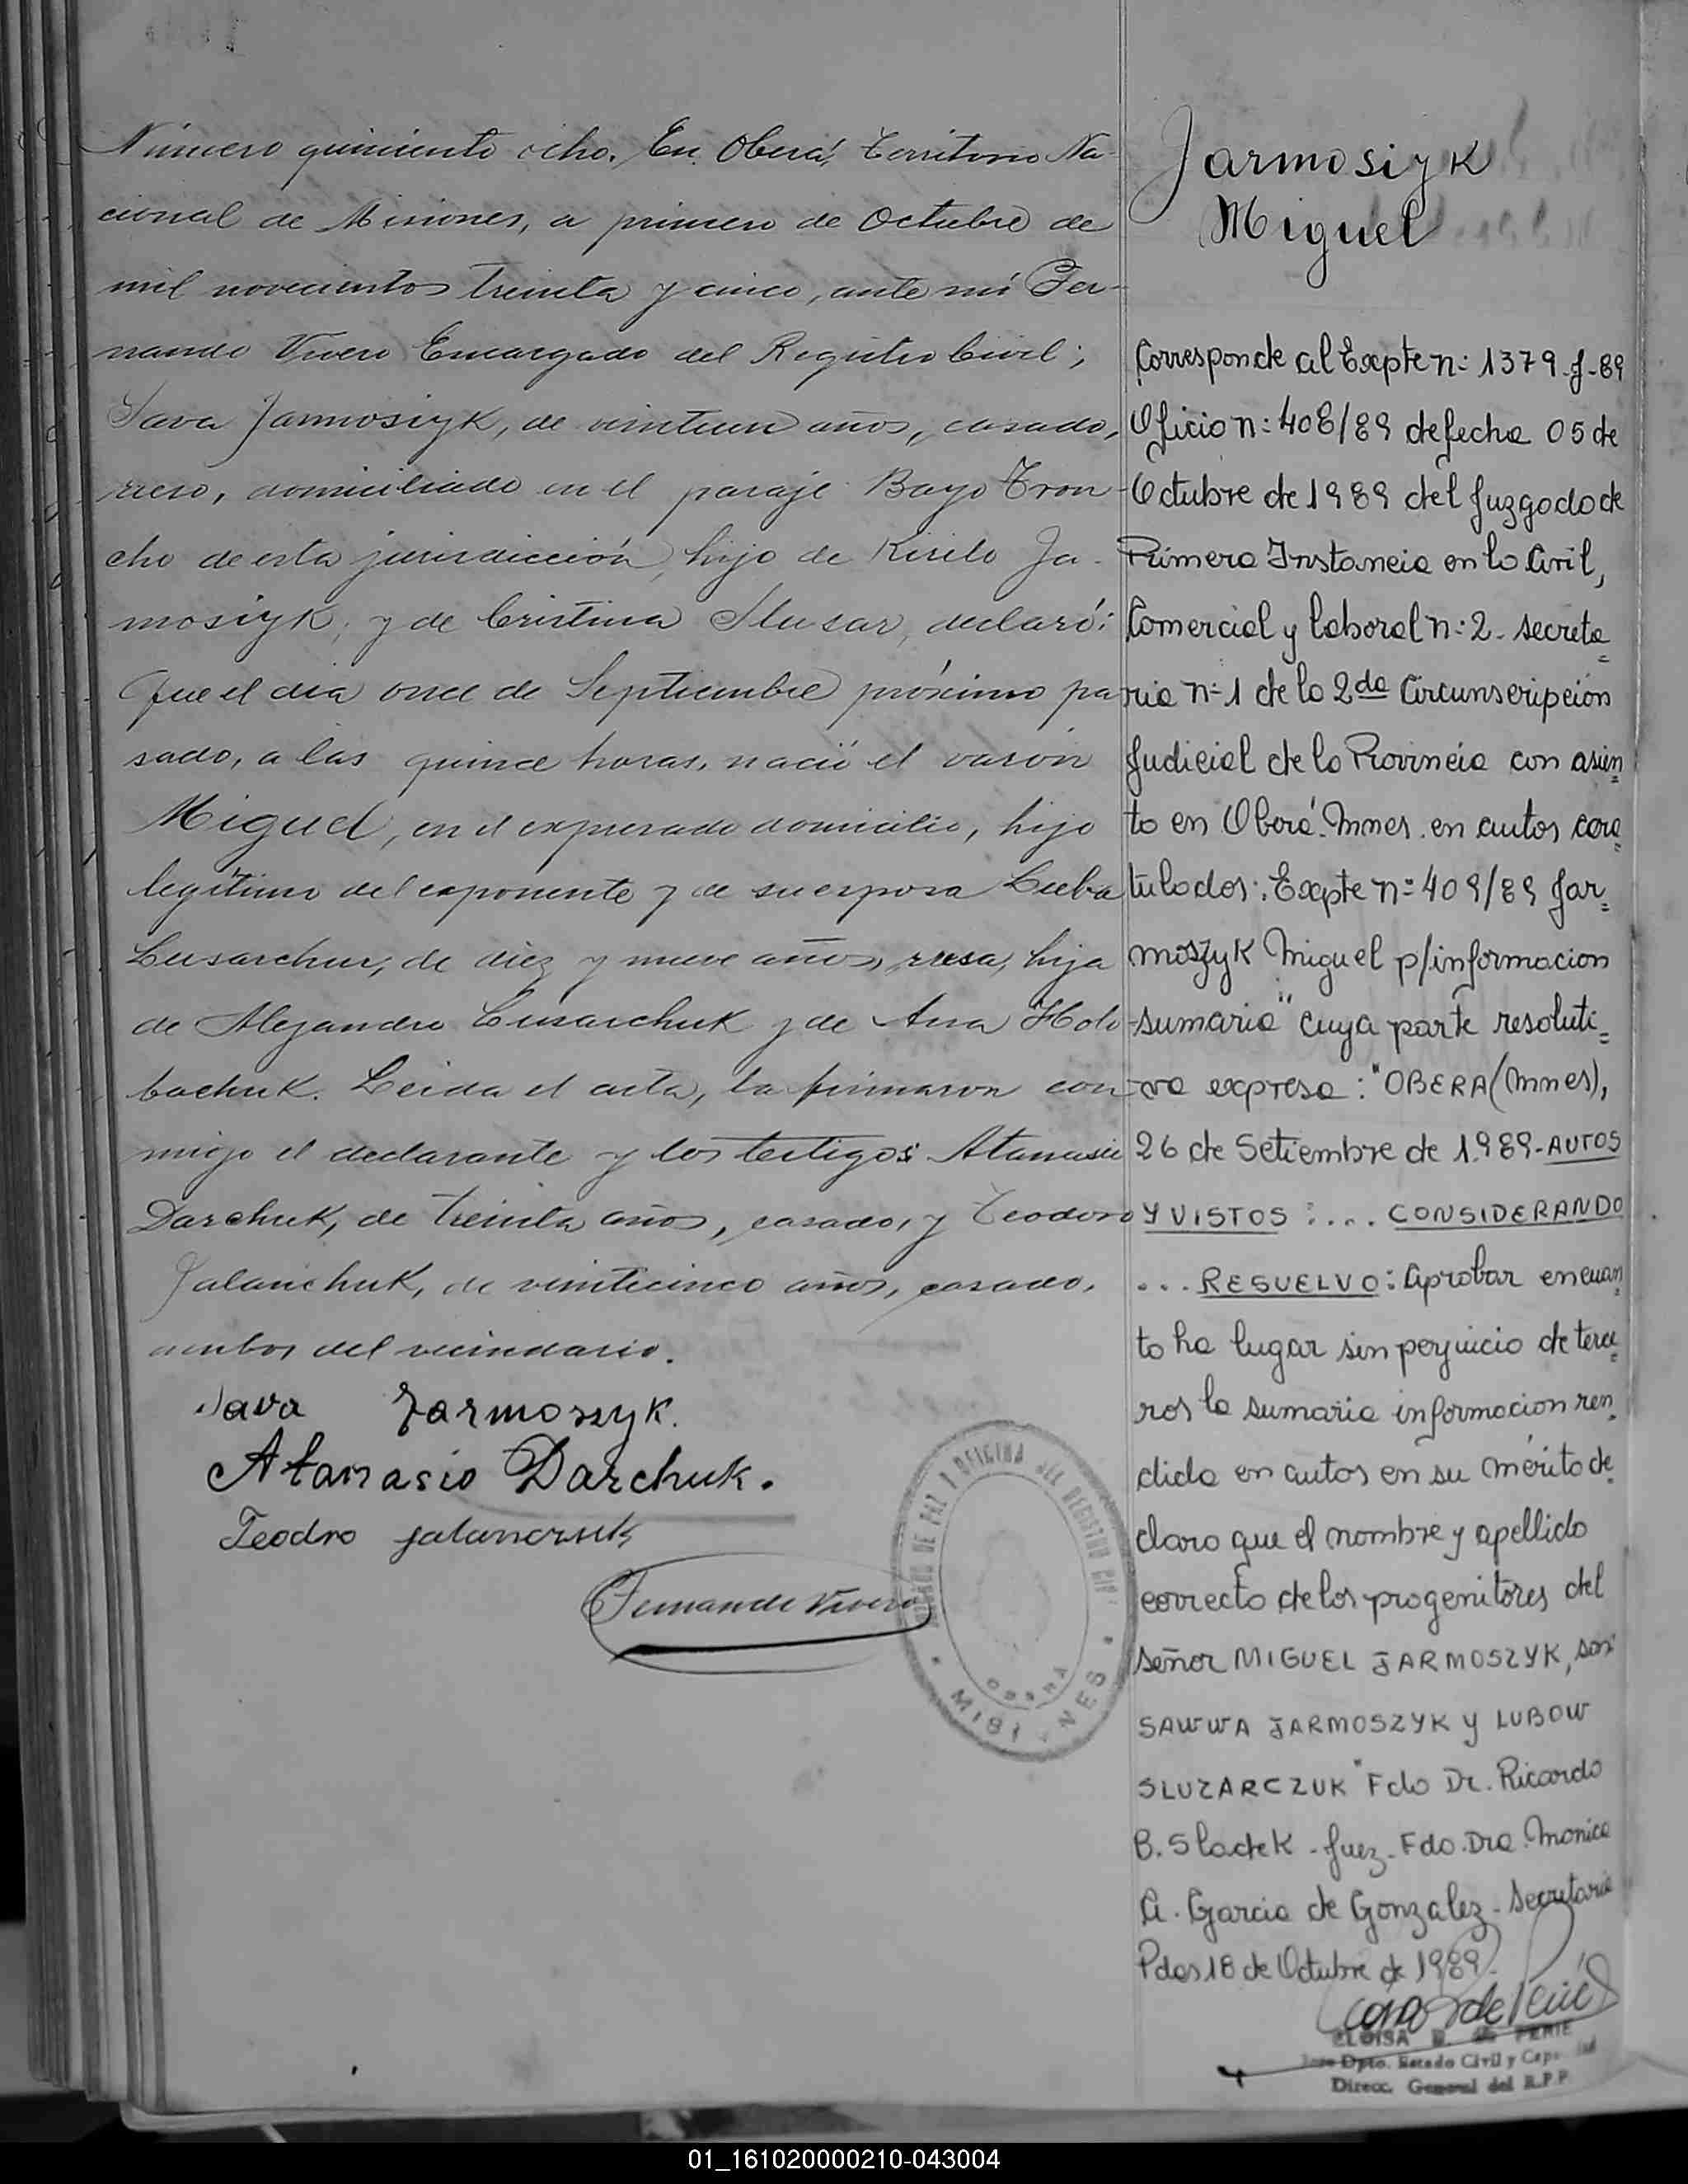 Número quiniento ocho. En Oberá, Territorio Na-
cional de Misiones, a primero de Octubre de
mil novecientos treinta y cinco, ante mí Fer-
nando Vivero Encargado del Registro Civil;
Sava Jarmosiyk, de veintiun años, casado,
ruso, domiciliado en el paraje Bayo Tron-
cho de esta jurisdicción, hijo de Kirilo Ja-
mosiyk, y de Cristina Slusar, declaró:
Que el día once de Septiembre próximo pa
sado, a las quince horas, nació el varón
Miguel, en el expresado domicilio, hijo
legítimo del exponente y de su esposa Lueba
Lusarchur, de diez y nueve años, rusa, hija
de Alejandro Cusarchuk y de Ana Holo-
bachuk. Leida el acta, la firmaron con-
migo el declarante y los testigos: Atanasio
Darchuk, de treinta años, casado, y Teodoro
Jalanchuk, de veinticinco años, casado,
ambos del vecindario.
Sava Jarmoszyk.
Atanasio Darchuk.
Teodro Jalanczuk
Fernando Vivero
JUZGADO DE PAZ Y OFICINA DEL REGISTRO CIVIL
OBERA
MISIONES
Jarmosiyk
Miguel
Corresponde al Expte n: 1379-J-89
Oficio n: 408/89 de fecha 05 de
Octubre de 1989 del Juzgado de
Primera Instancia en lo Civil,
Comercial y laboral n: 2- secreta=
ria n: 1 de la 2da Circunscripción
Judicial de la Provincia con asien=
to en Oberá. Mnes. en autos cara=
tulados: Expte n: 409/89 Jar=
moszyk Miguel p/informacion
sumaria" cuya parte resoluti=
va expresa: "OBERA (Mnes),
26 de Setiembre de 1.989-AUTOS
Y VISTOS:.... CONSIDERANDO
... RESUELVO: Aprobar en cuan=
to ha lugar sin perjuicio de terce=
ros la sumaria información ren=
dida en autos en su mérito de=
claro que el nombre y apellido
correcto de los progenitores del
señor MIGUEL JARMOSZYK, son
SAWWA JARMOSZYK y LUBOW
SLUZARCZUK" Fdo Dr. Ricardo
B. Sladek - Juez - Fdo. Dra. Monica
A. Garcia de Gonzalez - Secretaria
Pdas 18 de Octubre de 1989.
ELOISA B. de PERIE
Dpto. Estado Civil y Cap.
Direcc. General del R.P.P.
01_161020000210-043004